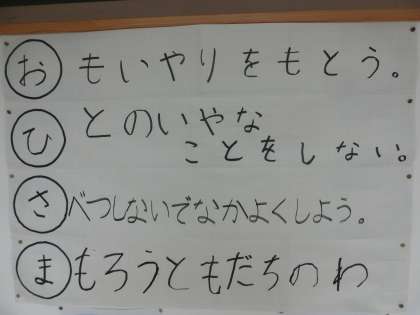 おもいやりをもとう。
ひとのいやな
ことをしない。
さべつしないでなかよくしよう。
まもろうともだちのわ